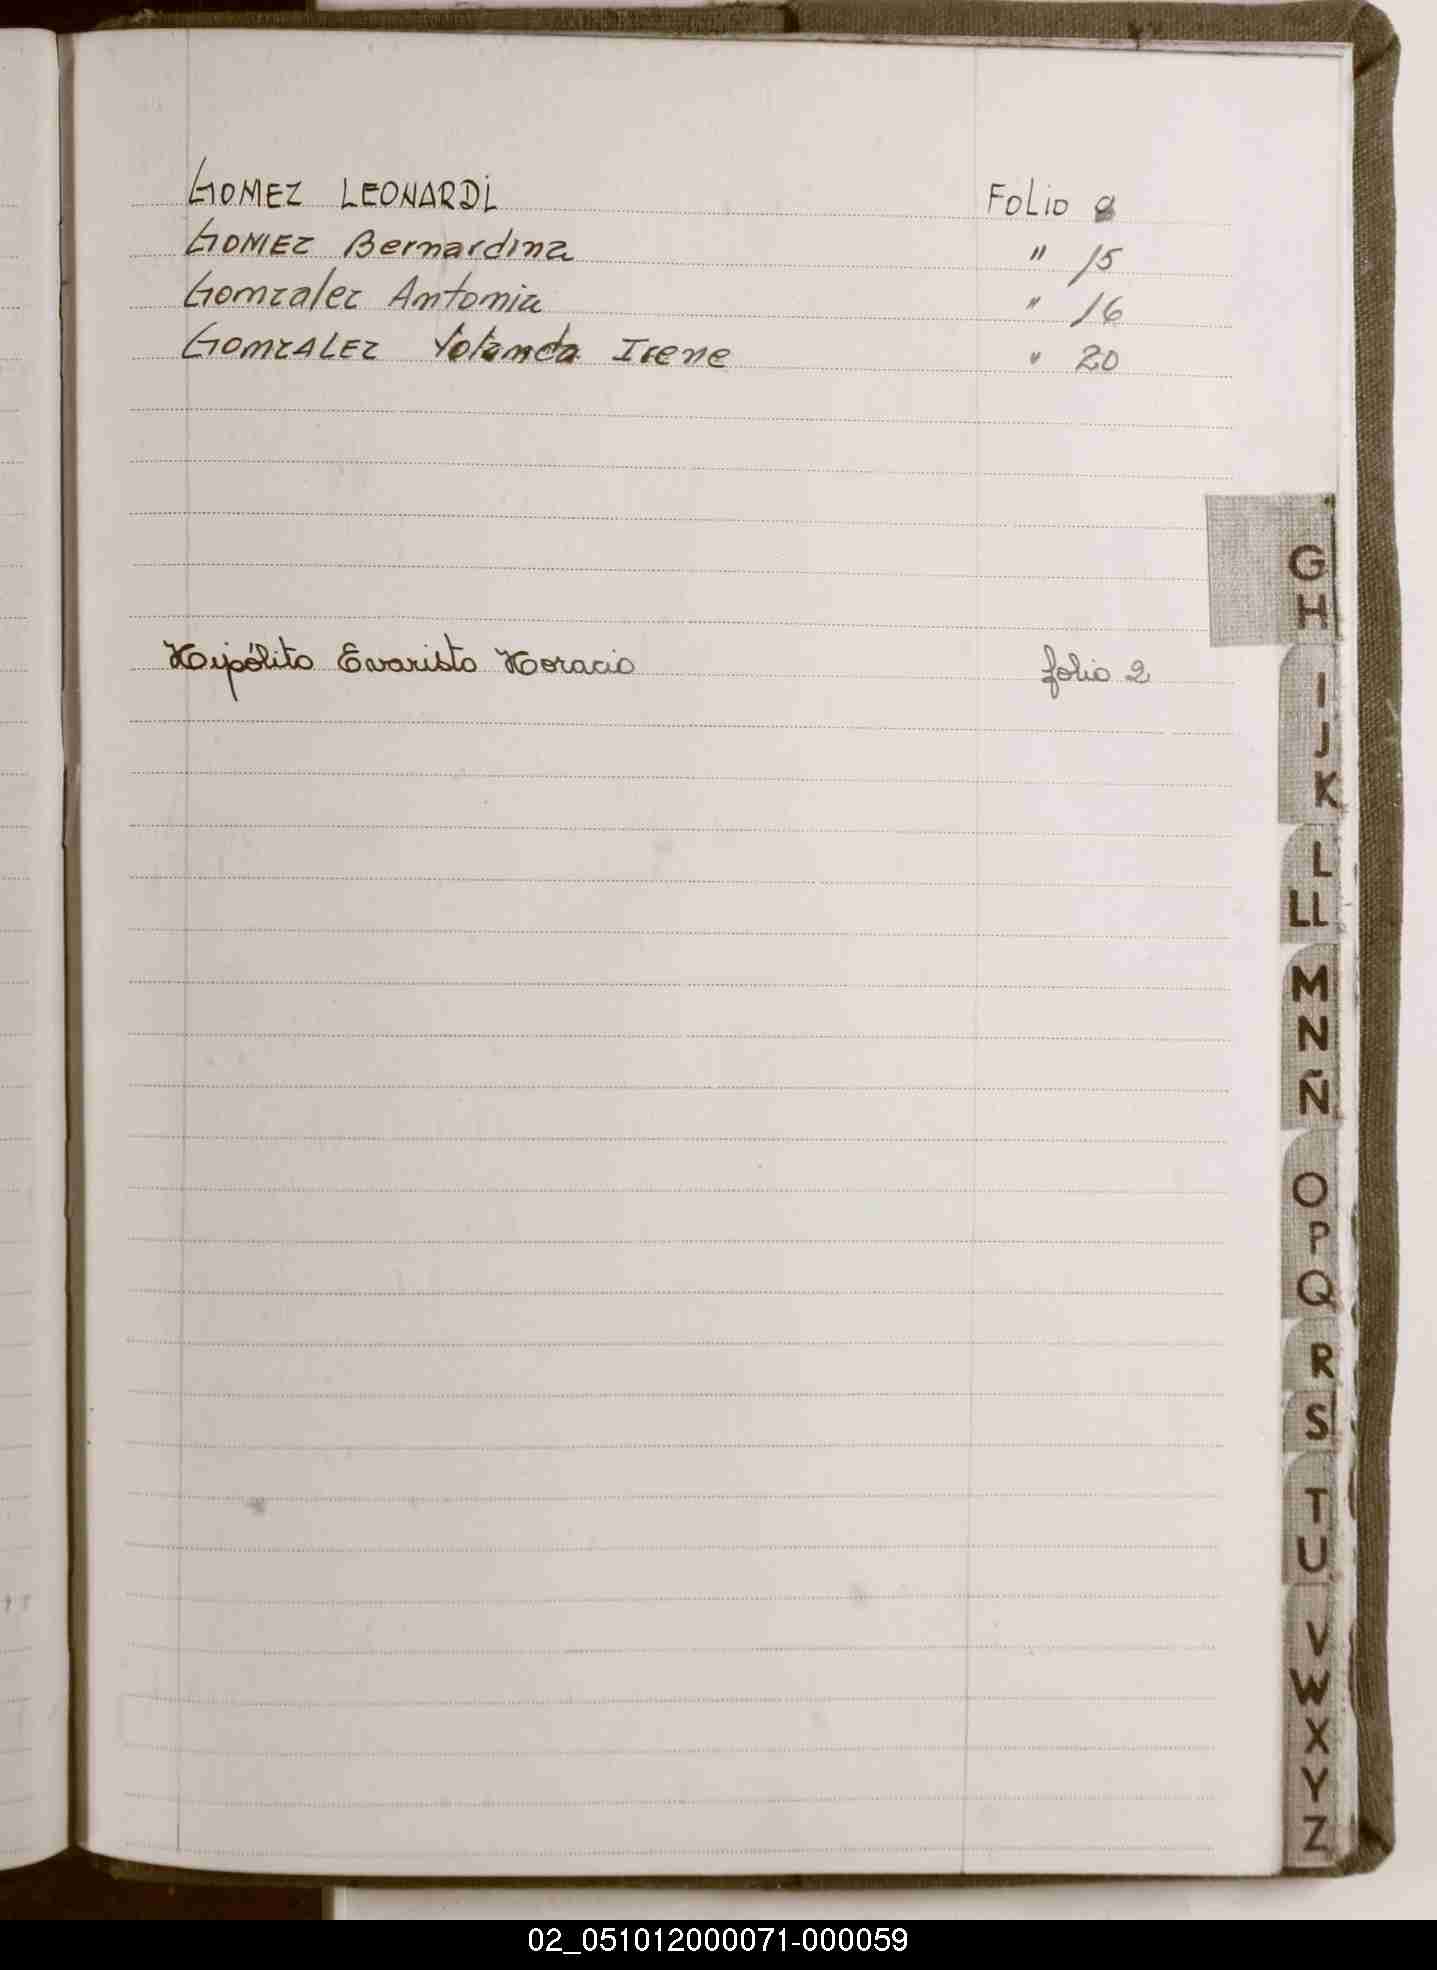 GOMEZ LEONARDI Folio 8
GOMEZ Bernardina " 15
Gonzalez Antonia " 16
GONZALEZ Yolanda Irene " 20
Hipólito Evaristo Horacio folio 2
G
H
I
J
K
L
LL
M
N
Ñ
O
P
Q
R
S
T
U
V
W
X
Y
Z
02_051012000071-000059